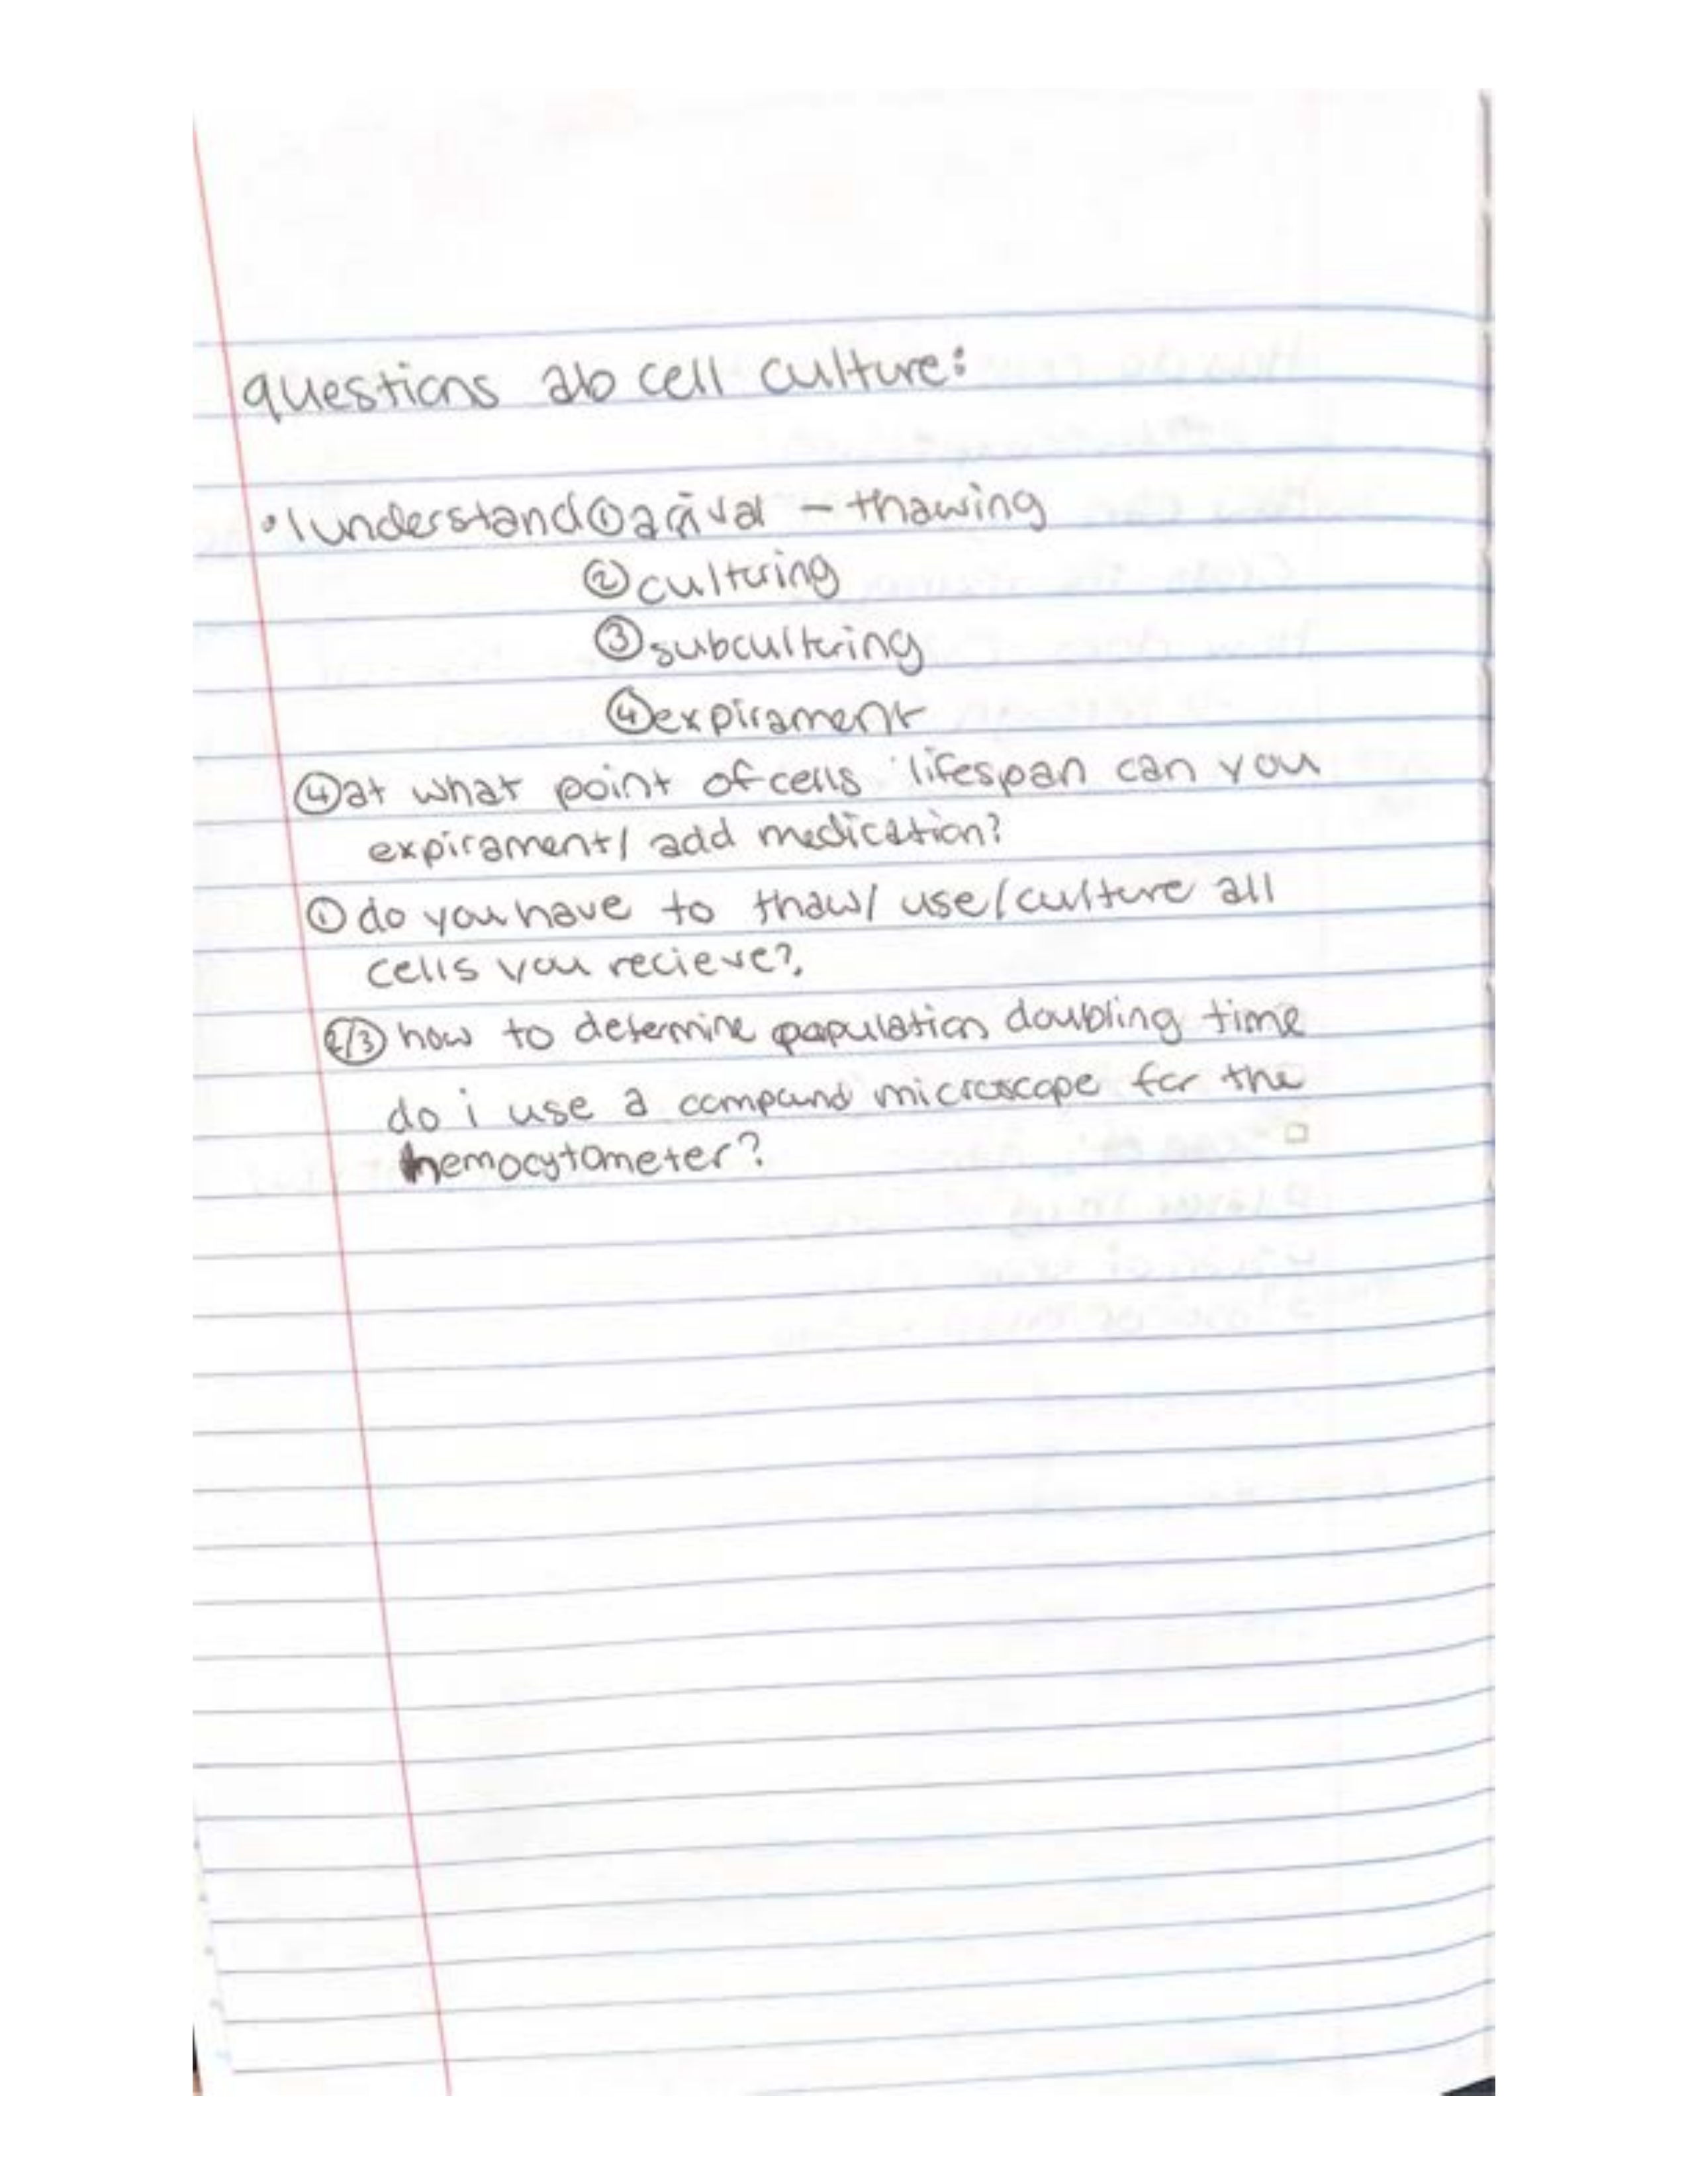 questions ab cell culture:
• I understand ① arrival - thawing
② culturing
③ subculturing
④ expirament
④ at what point of cells lifespan can you
expirament/ add medication?
① do you have to thaw/ use/culture all
cells you recieve?
2/3 how to determine population doubling time
do i use a compound microscope for the
hemocytometer?